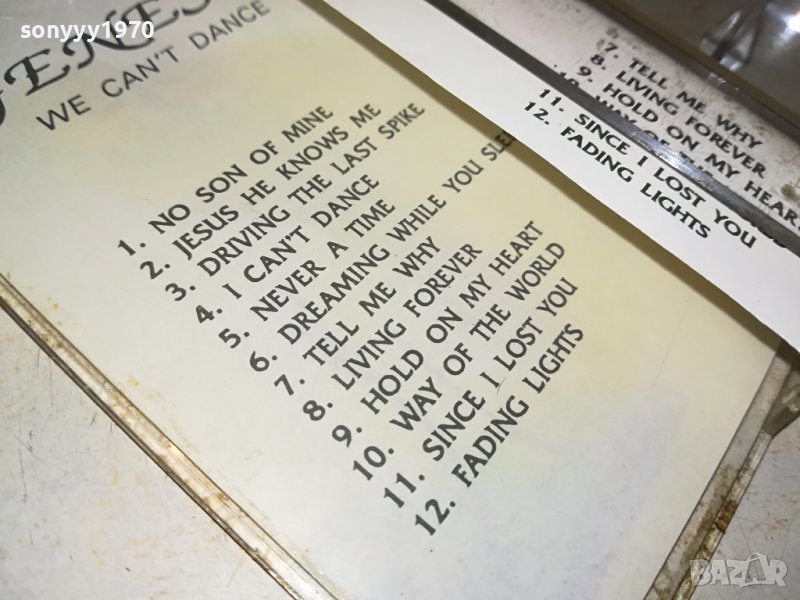 sonyyy1970
WE CAN'T DANCE
1. NO SON OF MINE
2. JESUS HE KNOWS ME
3. DRIVING THE LAST SPIKE
4. I CAN'T DANCE
5. NEVER A TIME
6. DREAMING WHILE YOU
7. TELL ME WHY
8. LIVING FOREVER
9. HOLD ON MY HEART
10. WAY OF THE WORLD
11. SINCE I LOST YOU
12. FADING LIGHTS
7. TELL ME WHY
8. LIVING FOREVER
9. HOLD ON MY HEART
11. SINCE I LOST YOU
12. FADING LIGHTS
BAZAR